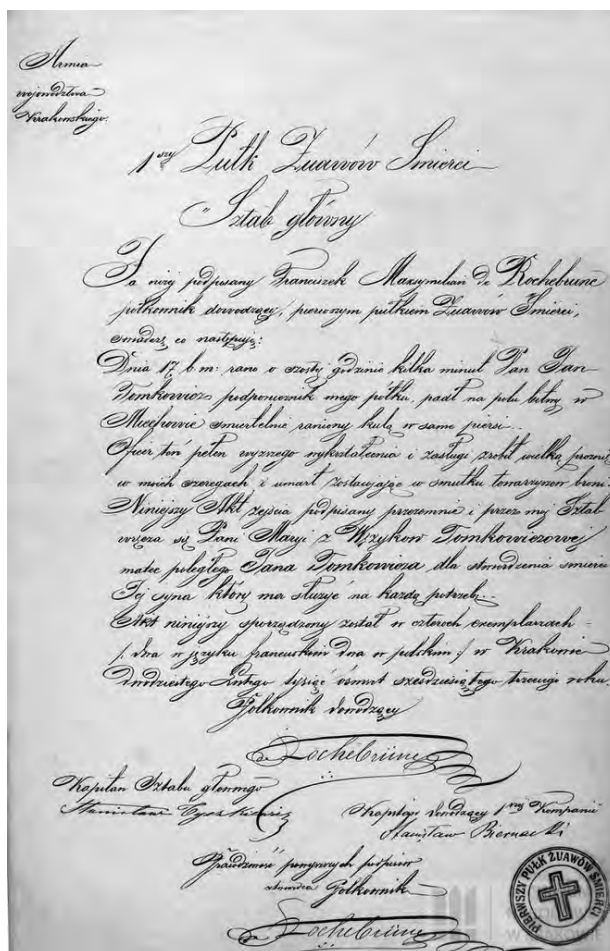 Armia
województwa
Krakowskiego.
1szy Pułk Żuawów Śmierci
Sztab główny
Ja niżej podpisany Franciszek Maxymilian de Rochebrune
półkownik dowodzący, pierwszym pułkiem Żuawów Śmierci,
świadczę co następuje:
Dnia 17. b. m: rano o szóstej godzinie kilka minut Pan Jan
Tomkowicz podporucznik mego półku, padł na polu bitwy w
Miechowie śmiertelnie raniony kulą w same piersi.
Oficer ten pełen wyższego wykształcenia i zasługi zrobił wielką próżnię
w moich szeregach i umarł zostawiając w smutku towarzyszów broni.
Niniejszy Akt zejścia podpisany przezemnie i przez mój Sztab
wręcza się Pani Maryi z Wężyków Tomkowiczowej
matce poległego Jana Tomkowicza dla stwierdzenia śmierci
Jej syna który ma służyć na każdą potrzebę.
Akt niniejszy sporządzony został w czterech exemplarzach
/: dwa w języku francuskim dwa w polskim :/ w Krakowie
dwudziestego Lutego tysiąc ośmset sześdziesiątego trzeciego roku.
Półkownik dowodzący
de Rochebrune
Kapitan Sztabu głównego
Stanisław
Kapitan dowodzący 1wszej Kompanii
Stanisław Biernacki
Prawdziwość powyższych podpisów
stwierdza Półkownik
de Rochebrune
PIERWSZY PUŁK ŻUAWÓW ŚMIERCI